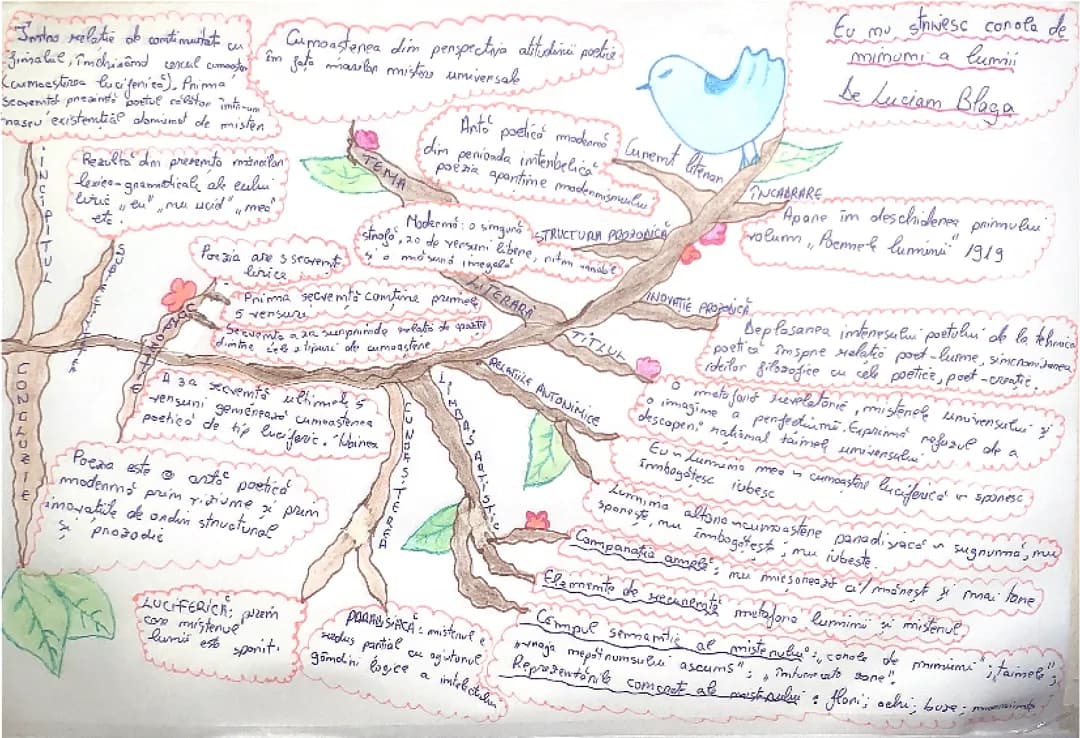 Eu nu strivesc corola de
minuni a lumii
De Lucian Blaga
Într-o relație de continuitate cu
finalul, închizând cercul cunoașterii
(cunoașterea luciferică). Prima
secvență prezintă poetul călător într-un
existențial dominat de mister
INCIPITUL
Cunoașterea din perspectiva atitudinii poetice
în fața marilor mistere universale
TEMA
Rezultă din prezența mărcilor
lexico-gramaticale ale eului
liric „eu", „nu ucid", „mea"
etc.
Artă poetică modernă
din perioada interbelică
poezia aparține modernismului
Curent literar
ÎNCADRARE
Apare în deschiderea primului
volum „Poemele luminii" 1919
Modernă: o singură
strofă, 20 de versuri libere, ritm variabil
și o măsură inegală
STRUCTURA PROZODICĂ
LITERARĂ
Poezia are 3 secvențe
lirice
Prima secvență conține primele
5 versuri
Secvența a 2a surprinde relația de opoziție
dintre cele 2 tipuri de cunoaștere
A 3a secvență ultimele 5
versuri generează cunoașterea
poetică de tip luciferic. Iubirea
INOVAȚIE PROZODICĂ
Deplasarea interesului poetului de la tehnica
poetică înspre relația poet-lume, sincronizarea
ideilor filozofice cu cele poetice, poet-creație.
TITLUL
O metaforă revelatorie, misterele universului și
o imagine a perfecțiunii. Exprimă refuzul de a
descoperi rațional tainele universului
RELAȚIILE ANTONIMICE
Eu ~ Lumina mea ~ cunoaștere luciferică ~ sporesc
îmbogățesc iubesc
Lumina altora ~ cunoaștere paradisiacă ~ sugrumă, nu
sporește, nu îmbogățește, nu iubește.
CONCLUZIE
Poezia este o artă poetică
modernă prin viziune și prin
inovațiile de ordin structural
și prozodic
CUNOAȘTEREA
LUCIFERICĂ: prin
care misterul
lumii este sporit.
PARADISIACĂ: misterul e
redus parțial cu ajutorul
gândirii logice a intelectului
Comparația amplă: nu micșorează ci/mărește și mai tare
Elemente de recurență metafora luminii și misterul
Câmpul semantic al misterului: „corola de minuni"; „tainele";
„vraja nepătrunsului ascuns"; „întunecata zare".
Reprezentările concrete ale misterului: flori; ochi; buze; morminte